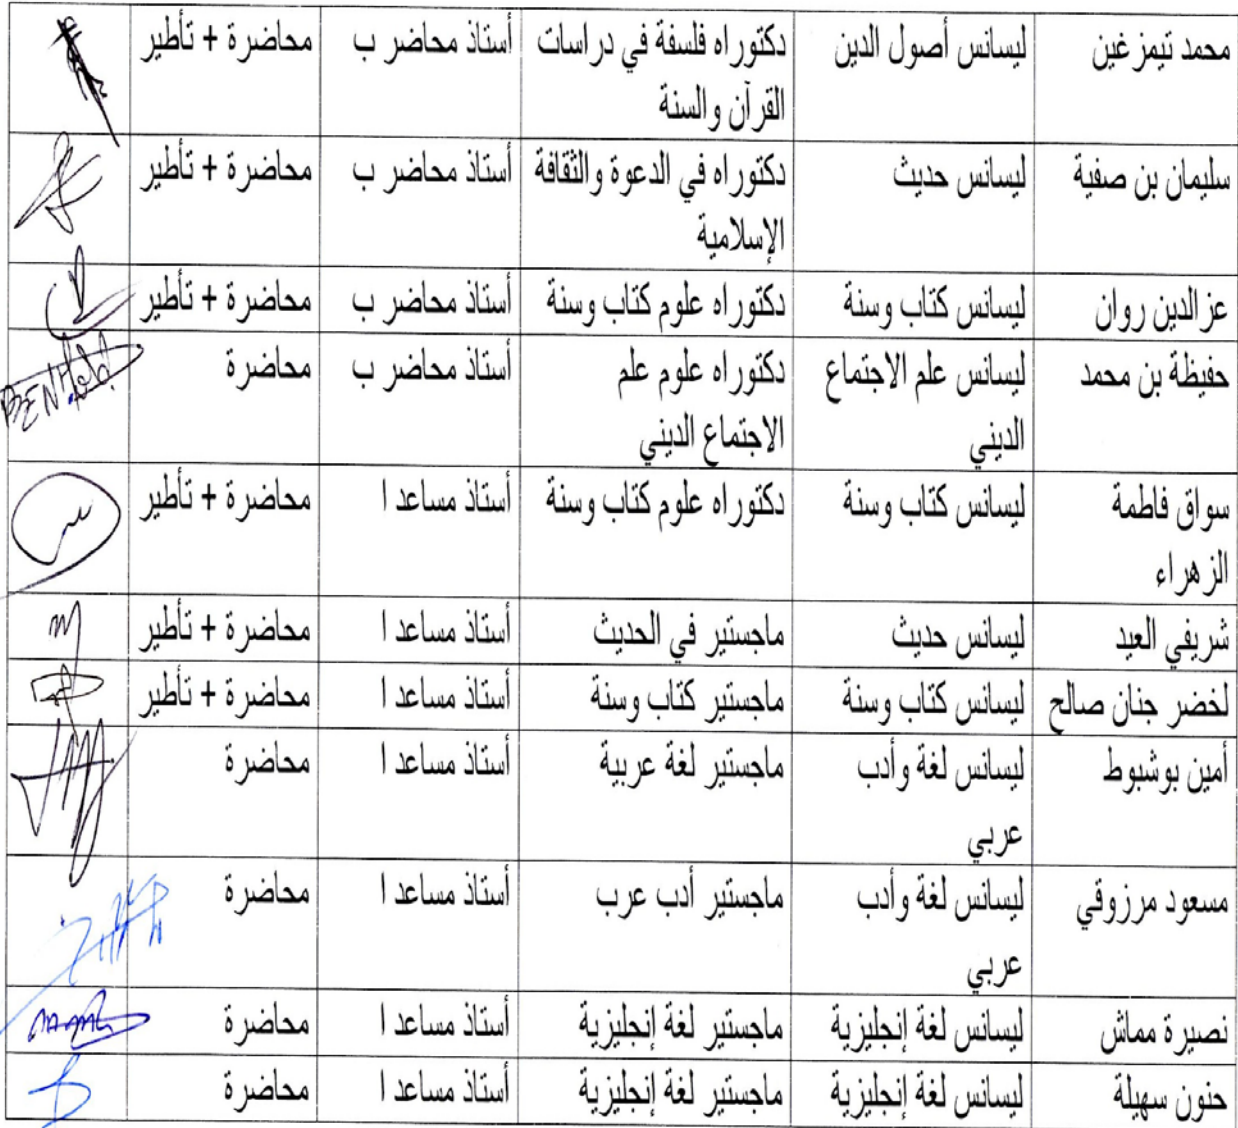 محمد تيمزغين ليسانس أصول الدين دكتوراه فلسفة في دراسات أستاذ محاضر ب محاضرة + تأطير
القرآن والسنة
سليمان بن صفية ليسانس حديث دكتوراه في الدعوة والثقافة أستاذ محاضر ب محاضرة + تأطير
الإسلامية
عزالدين روان ليسانس كتاب وسنة دكتوراه علوم كتاب وسنة أستاذ محاضر ب محاضرة + تأطير
حفيظة بن محمد ليسانس علم الاجتماع دكتوراه علوم علم أستاذ محاضر ب محاضرة
الديني الاجتماع الديني
سواق فاطمة ليسانس كتاب وسنة دكتوراه علوم كتاب وسنة أستاذ مساعد ا محاضرة + تأطير
الزهراء
شريفي العيد ليسانس حديث ماجستير في الحديث أستاذ مساعد ا محاضرة + تأطير
لخضر جنان صالح ليسانس كتاب وسنة ماجستير كتاب وسنة أستاذ مساعد ا محاضرة + تأطير
أمين بوشبوط ليسانس لغة وأدب ماجستير لغة عربية أستاذ مساعد ا محاضرة
عربي
مسعود مرزوقي ليسانس لغة وأدب ماجستير أدب عرب أستاذ مساعد ا محاضرة
عربي
نصيرة مماش ليسانس لغة إنجليزية ماجستير لغة إنجليزية أستاذ مساعد ا محاضرة
حنون سهيلة ليسانس لغة إنجليزية ماجستير لغة إنجليزية أستاذ مساعد ا محاضرة